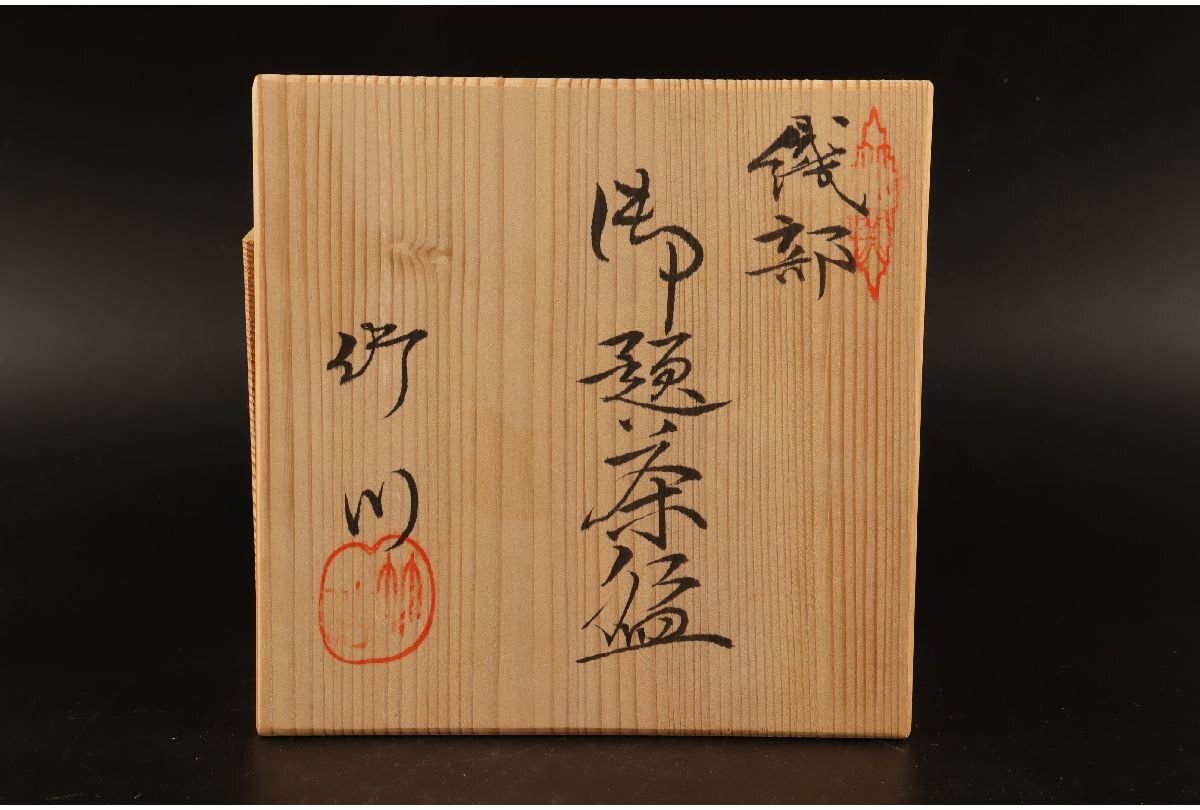 織部
御題茶盌
竹川